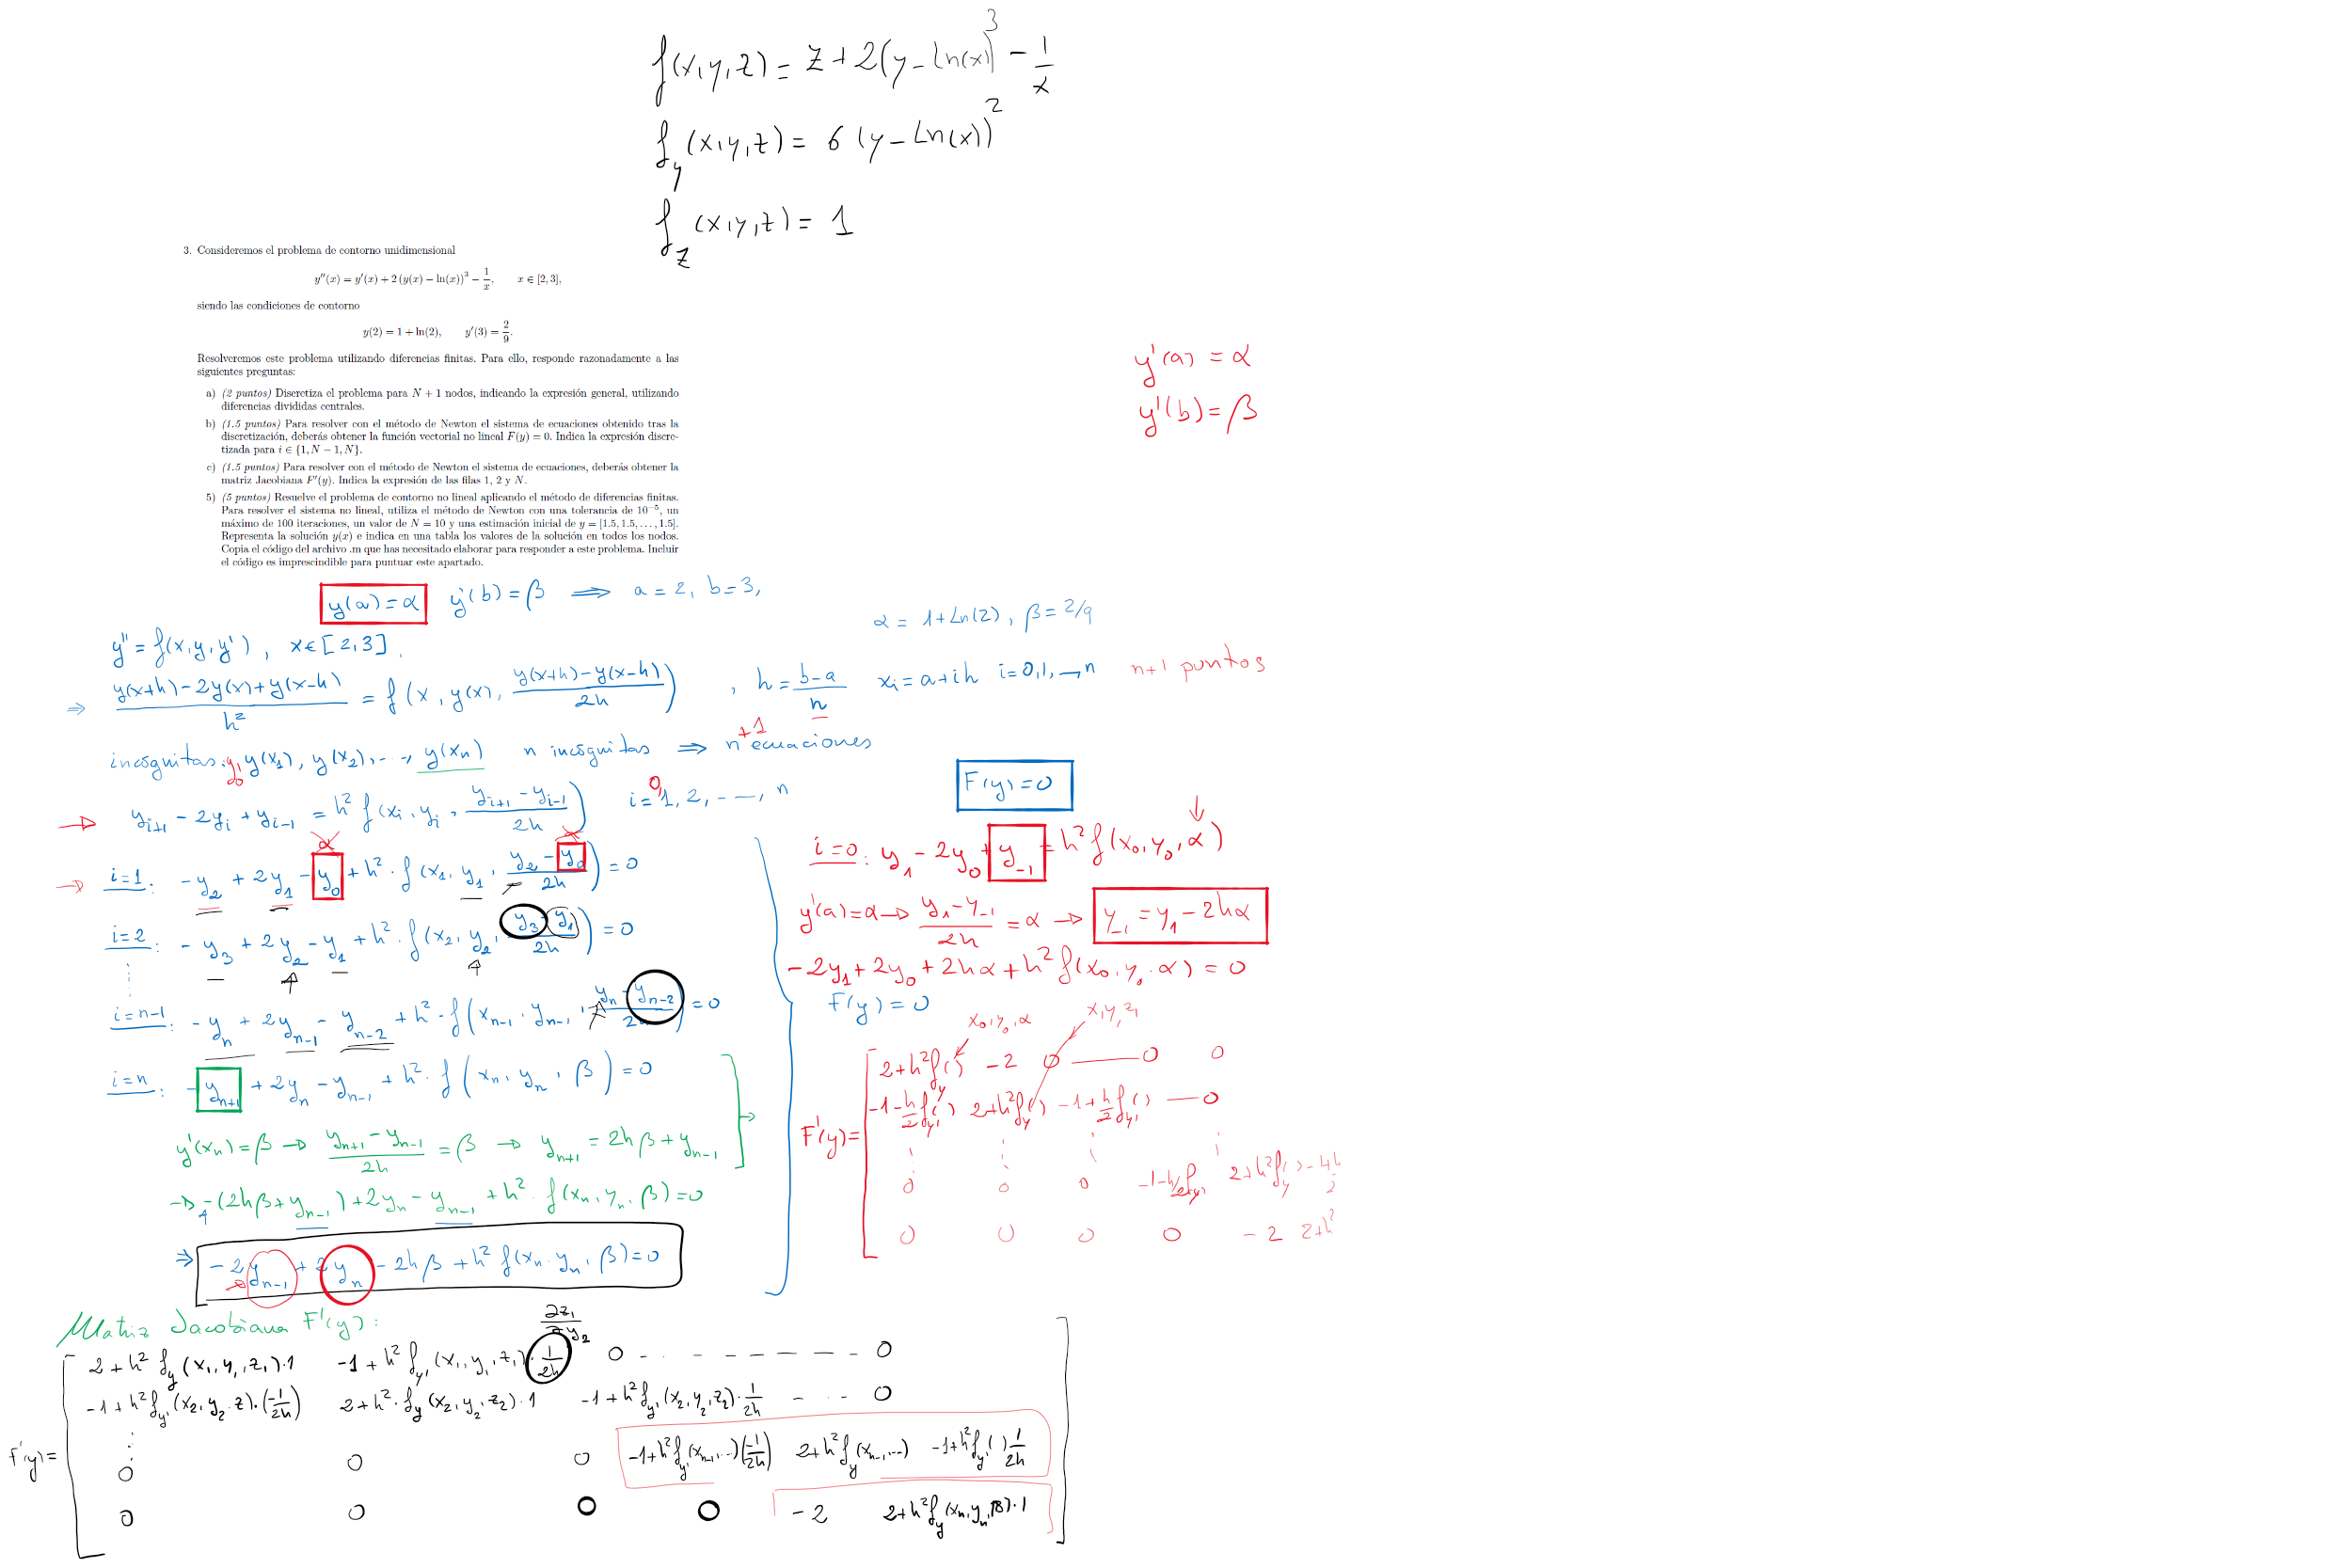 f(x,y,z) = z + 2(y - ln(x))^3 - 1/x
f_y (x,y,z) = 6 (y - Ln(x))^2
f_z (x,y,z) = 1
3. Consideremos el problema de contorno unidimensional
y''(x) = y'(x) + 2 (y(x) − ln(x))^3 − 1/x, x ∈ [2, 3],
siendo las condiciones de contorno
y(2) = 1 + ln(2), y'(3) = 2/9.
Resolveremos este problema utilizando diferencias finitas. Para ello, responde razonadamente a las
siguientes preguntas:
a) (2 puntos) Discretiza el problema para N + 1 nodos, indicando la expresión general, utilizando
diferencias divididas centrales.
b) (1.5 puntos) Para resolver con el método de Newton el sistema de ecuaciones obtenido tras la
discretización, deberás obtener la función vectorial no lineal F(y) = 0. Indica la expresión discre-
tizada para i ∈ {1, N − 1, N}.
c) (1.5 puntos) Para resolver con el método de Newton el sistema de ecuaciones, deberás obtener la
matriz Jacobiana F'(y). Indica la expresión de las filas 1, 2 y N.
5) (5 puntos) Resuelve el problema de contorno no lineal aplicando el método de diferencias finitas.
Para resolver el sistema no lineal, utiliza el método de Newton con una tolerancia de 10^−5, un
máximo de 100 iteraciones, un valor de N = 10 y una estimación inicial de y = [1.5, 1.5, . . . , 1.5].
Representa la solución y(x) e indica en una tabla los valores de la solución en todos los nodos.
Copia el código del archivo .m que has necesitado elaborar para responder a este problema. Incluir
el código es imprescindible para puntuar este apartado.
y'(a) = α
y'(b) = β
y(a) = α y'(b) = β ⟹ a = 2, b = 3,
α = 1+Ln(2), β = 2/9
y'' = f(x,y,y') , x ∈ [2,3].
⇒ (y(x+h) - 2y(x) + y(x-h))/h^2 = f(x, y(x), (y(x+h) - y(x-h))/2h) , h = (b-a)/n x_i = a + ih i = 0,1,...,n n+1 puntos
incógnitas: y_0, y(x_1), y(x_2), ..., y(x_n) n incógnitas ⟹ n +1 ecuaciones
→ y_{i+1} - 2y_i + y_{i-1} = h^2 f(x_i, y_i, (y_{i+1} - y_{i-1})/2h) i = 0, 1, 2, ..., n
→ i=1: -y_2 + 2y_1 - y_0 + h^2 · f(x_1, y_1, (y_2 - y_0)/2h) = 0
α α
i=2: -y_3 + 2y_2 - y_1 + h^2 · f(x_2, y_2, (y_3 - y_1)/2h) = 0
i=n-1: -y_n + 2y_{n-1} - y_{n-2} + h^2 · f(x_{n-1}, y_{n-1}, (y_n - y_{n-2})/2h) = 0
i=n: -y_{n+1} + 2y_n - y_{n-1} + h^2 · f(x_n, y_n, β) = 0
y'(x_n) = β → (y_{n+1} - y_{n-1})/2h = β → y_{n+1} = 2hβ + y_{n-1}
→ -(2hβ + y_{n-1}) + 2y_n - y_{n-1} + h^2 · f(x_n, y_n, β) = 0
⇒ -2y_{n-1} + 2y_n - 2hβ + h^2 f(x_n, y_n, β) = 0
F(y) = 0
i=0: y_1 - 2y_0 + y_{-1} = h^2 f(x_0, y_0, α)
y'(a) = α → (y_1 - y_{-1})/2h = α → y_{-1} = y_1 - 2hα
-2y_1 + 2y_0 + 2hα + h^2 f(x_0, y_0, α) = 0
F(y) = 0
x_0, y_0, α x_1 y_1 z_1
2+h^2 f_y( ) -2 0 — 0 0
-1-h/2 f_y'( ) 2+h^2 f_y( ) -1+h/2 f_y'( ) — 0
F'(y) =
0 0 0 -1-h/2 f_y' 2+h^2 f_y( )
0 0 0 0 -2 2+h^2
Matriz Jacobiana F'(y):
∂z_1/∂y_2
2 + h^2 f_y (x_1, y_1, z_1)·1 -1 + h^2 f_y' (x_1, y_1, z_1) · 1/2h 0 - - - - - 0
-1 + h^2 f_y' (x_2, y_2, z)·(-1/2h) 2 + h^2 · f_y (x_2, y_2, z_2)·1 -1 + h^2 f_y' (x_2, y_2, z_2)· 1/2h - - - 0
F'(y) =
0 0 0 -1+h^2 f_y' (x_{n-1}, ...)(-1/2h) 2+h^2 f_y (x_{n-1}, ...) -1+h^2 f_y' ( ) 1/2h
0 0 0 0 -2 2+h^2 f_y (x_n, y_n, β)·1